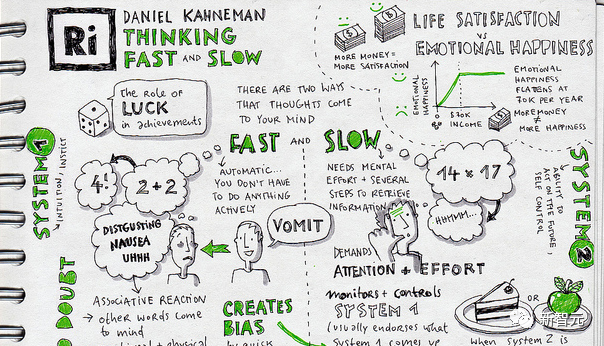 Ri
DANIEL KAHNEMAN
THINKING
FAST AND SLOW
LIFE SATISFACTION
VS
EMOTIONAL HAPPINESS
MORE MONEY =
MORE SATISFACTION
EMOTIONAL
HAPPINESS
70K
INCOME
EMOTIONAL
HAPPINESS
FLATTENS AT
70K PER YEAR
MORE MONEY
MORE HAPPINESS
The role of
LUCK
in achievements
THERE ARE TWO WAYS
THAT THOUGHTS COME
TO YOUR MIND
FAST AND SLOW
SYSTEM 1
INTUITION, INSTICT
4!
2+2
AUTOMATIC...
YOU DON'T HAVE
TO DO ANYTHING
ACTIVELY
NEEDS MENTAL
EFFORT + SEVERAL
STEPS TO RETRIEVE
INFORMATION
14 x 17
HHMMM...
SYSTEM 2
ABILITY TO
ACT ON THE FUTURE,
SELF CONTROL
DISTGUSTING
NAUSEA
UHHH
VOMIT
DEMANDS
ATTENTION + EFFORT
DOUBT
ASSOCIATIVE REACTION
other words come
to mind
+ physical
CREATES
BIAS
by quick
monitors + controls
SYSTEM 1
(usually endorses what
System 1 comes up
OR
when System 2 is
新智元